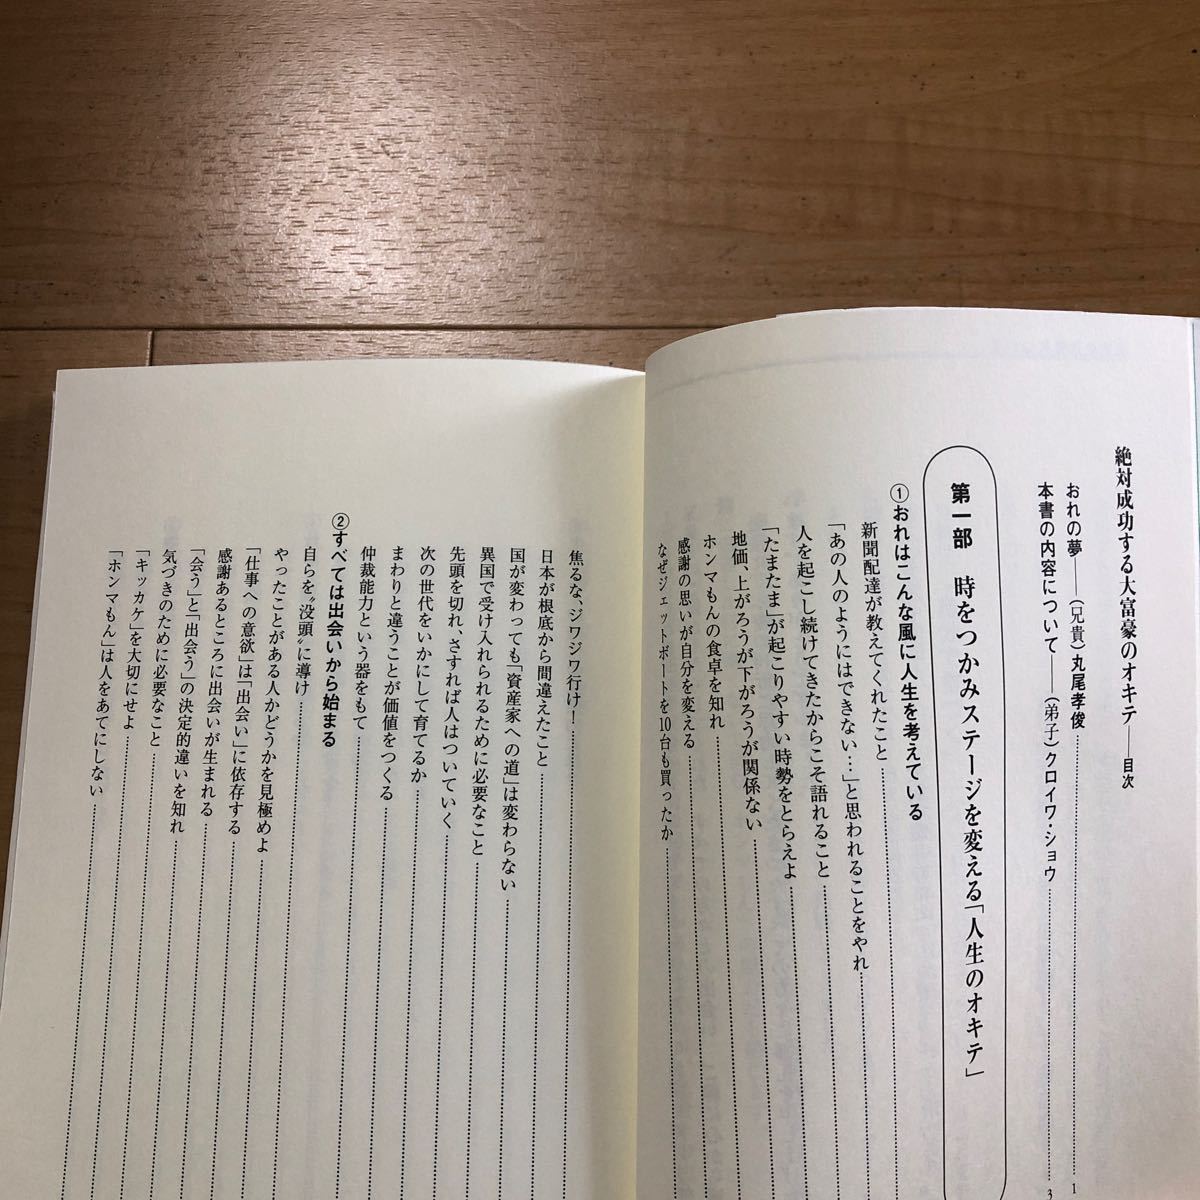 絶対成功する大富豪のオキテ——目次
おれの夢——(兄貴)丸尾孝俊 1
本書の内容について——(弟子)クロイワ・ショウ 3
第一部 時をつかみステージを変える「人生のオキテ」
①おれはこんな風に人生を考えている
新聞配達が教えてくれたこと
「あの人のようにはできない…」と思われることをやれ
人を起こし続けてきたからこそ語れること
「たまたま」が起こりやすい時勢をとらえよ
地価、上がろうが下がろうが関係ない
ホンマもんの食卓を知れ
感謝の思いが自分を変える
なぜジェットボートを10台も買ったか
焦るな、ジワジワ行け!
日本が根底から間違えたこと
国が変わっても「資産家への道」は変わらない
異国で受け入れられるために必要なこと
先頭を切れ、さすれば人はついていく
次の世代をいかにして育てるか
まわりと違うことが価値をつくる
仲裁能力という器をもて
②すべては出会いから始まる
自らを〝没頭〟に導け
やったことがある人かどうかを見極めよ
「仕事への意欲」は「出会い」に依存する
感謝あるところに出会いが生まれる
「会う」と「出会う」の決定的違いを知れ
気づきのために必要なこと
「キッカケ」を大切にせよ
「ホンマもん」は人をあてにしない